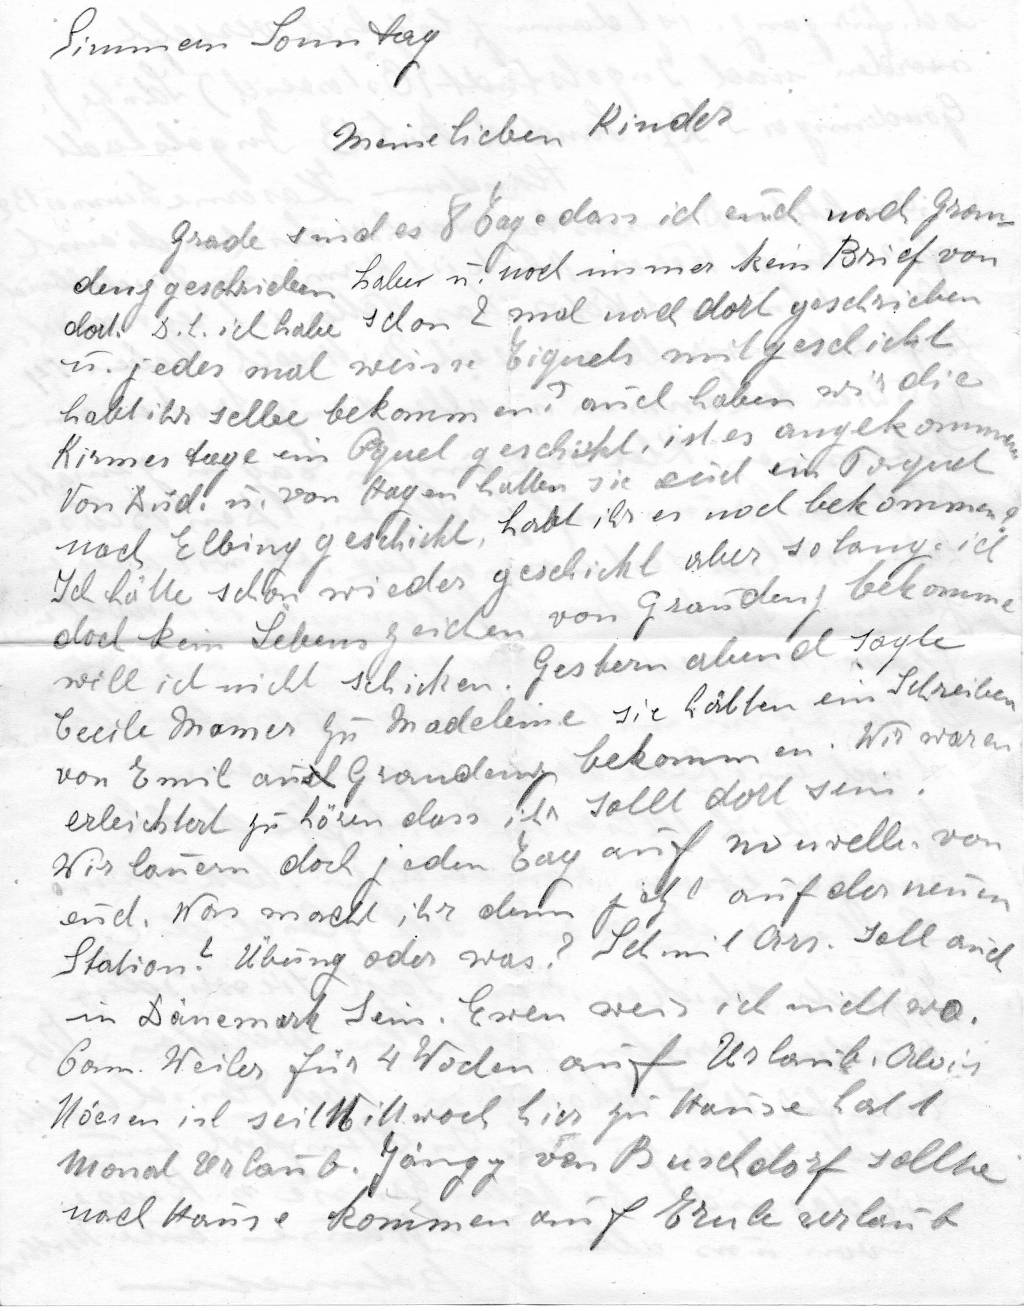 Simmern Sonntag
Meine lieben Kinder
Grade sind es 8 Tage dass ich euch nach Grau-
denz geschrieben habe u. noch immer kein Brief von
dort. D.h. ich habe schon 2 mal nach dort geschrieben
u. jedes mal weisse Etiquets mitgeschickt
habt ihr selbe bekommen? auch haben wir die
Kirmes tage ein Paquet geschickt, ist es angekommen
Von Düd. u. von Hagen hatten sie euch ein Paquet
nach Elbing geschickt, habt ihr es noch bekommen?
Ich hätte schon wieder geschickt aber solang ich
doch kein Lebenszeichen von Graudenz bekomme
will ich nicht schicken. Gestern abend sagte
Cecile Mamer zu Madeleine sie hätten ein Schreiben
von Emil aus Graudenz bekommen. Wir waren
erleichtert zu hören dass ihr sollt dort sein.
Wir lauern doch jeden Tag auf nouvelle. von
euch. Was macht ihr denn jetzt auf der neuen
Station? Übung oder was? Schmit Ars. soll auch
in Dänemark sein. Ewen weis ich nicht wo.
Cam. Weiler für 4 Wochen auf Urlaub. Alois
Nösen ist seit Mittwoch hier zu Hause hat 1
Monat Urlaub. Jängy von Buschdorf sollte
nach Hause kommen auf Ernte urlaub